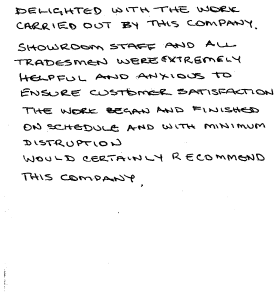 DELIGHTED WITH THE WORK
CARRIED OUT BY THIS COMPANY.
SHOWROOM STAFF AND ALL
TRADESMEN WERE EXTREMELY
HELPFUL AND ANXIOUS TO
ENSURE CUSTOMER SATISFACTION
THE WORK BEGAN AND FINISHED
ON SCHEDULE AND WITH MINIMUM
DISTRUPTION
WOULD CERTAINLY RECOMMEND
THIS COMPANY.